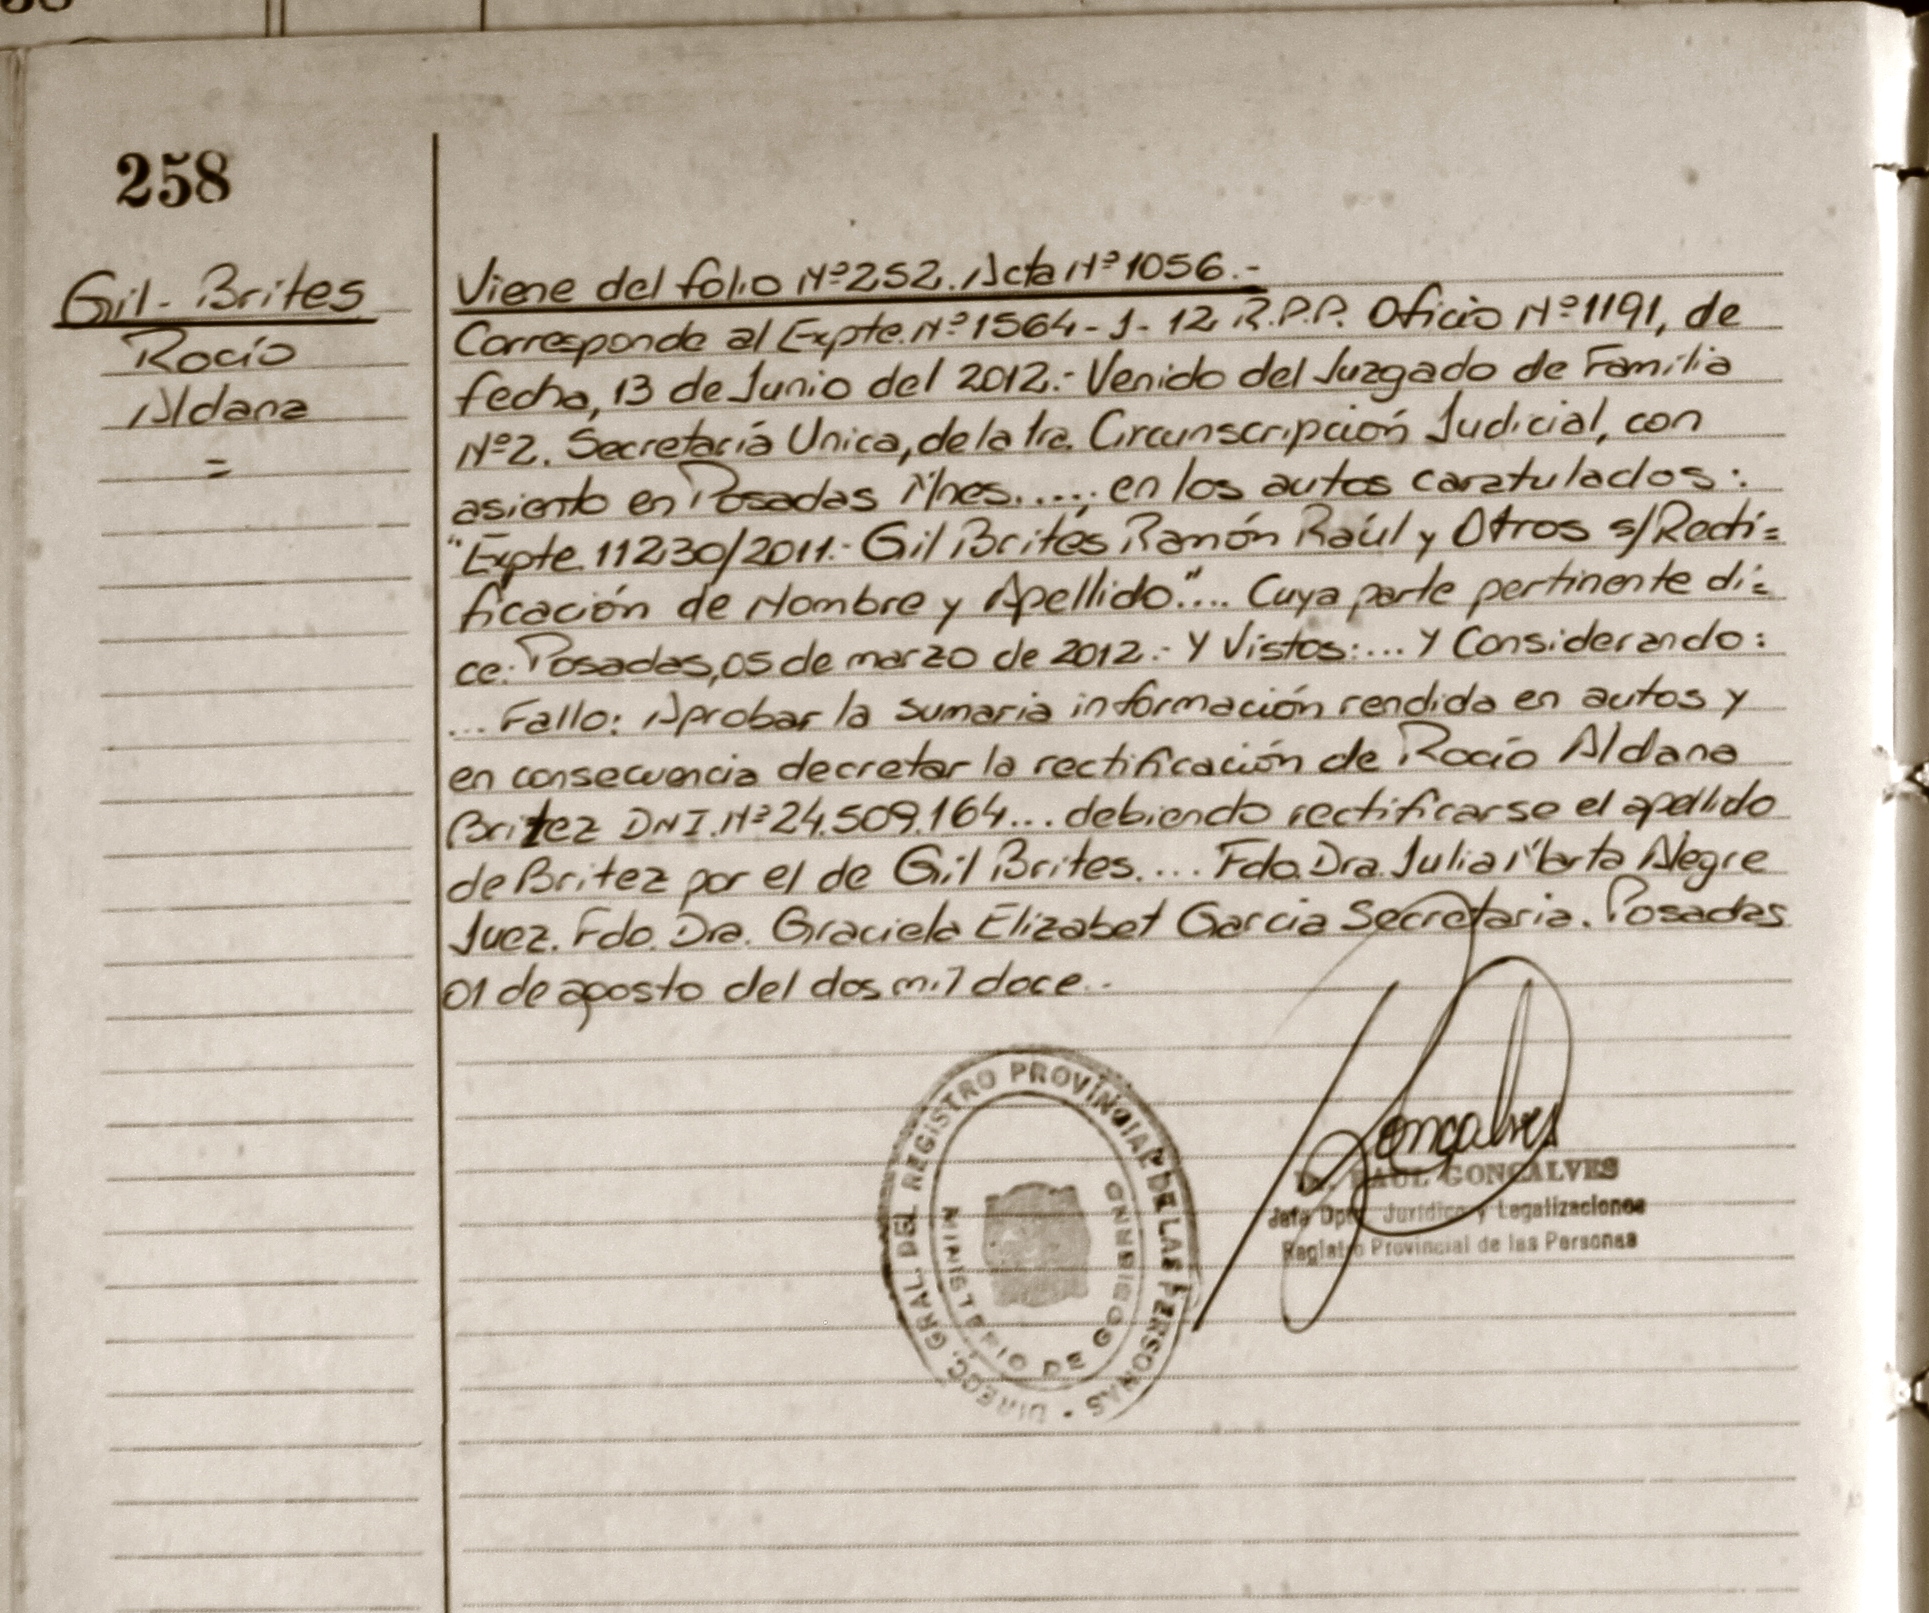 258
Gil - Brites
Rocío
Aldana
=
Viene del folio Nº252. Acta Nº1056.-
Corresponde al Expte. Nº1564-J-12 R.P.P. Oficio Nº1191, de
fecha, 13 de Junio del 2012.- Venido del Juzgado de Familia
Nº2. Secretaría Unica, de la 1ra. Circunscripción Judicial, con
asiento en Posadas Mnes....; en los autos caratulados:
"Expte. 11230/2011.- Gil Brites Ramón Raúl y Otros s/Recti=
ficación de Nombre y Apellido".... Cuya parte pertinente di=
ce: Posadas, 05 de marzo de 2012.- Y Vistos:... Y Considerando:
... Fallo: Aprobar la sumaria información rendida en autos y
en consecuencia decretar la rectificación de Rocío Aldana
Britez DNI. Nº24.509.164... debiendo rectificarse el apellido
de Britez por el de Gil Brites.... Fdo. Dra. Julia Marta Alegre
Juez. Fdo. Dra. Graciela Elizabet Garcia Secretaria. Posadas
01 de agosto del dos mil doce.-
DIRECC. GRAL. DEL REGISTRO PROVINCIAL DE LAS PERSONAS
MINISTERIO DE GOBIERNO
Gonçalves
Dr. RAUL GONCALVES
Jefe Dpto. Jurídico y Legalizaciones
Registro Provincial de las Personas